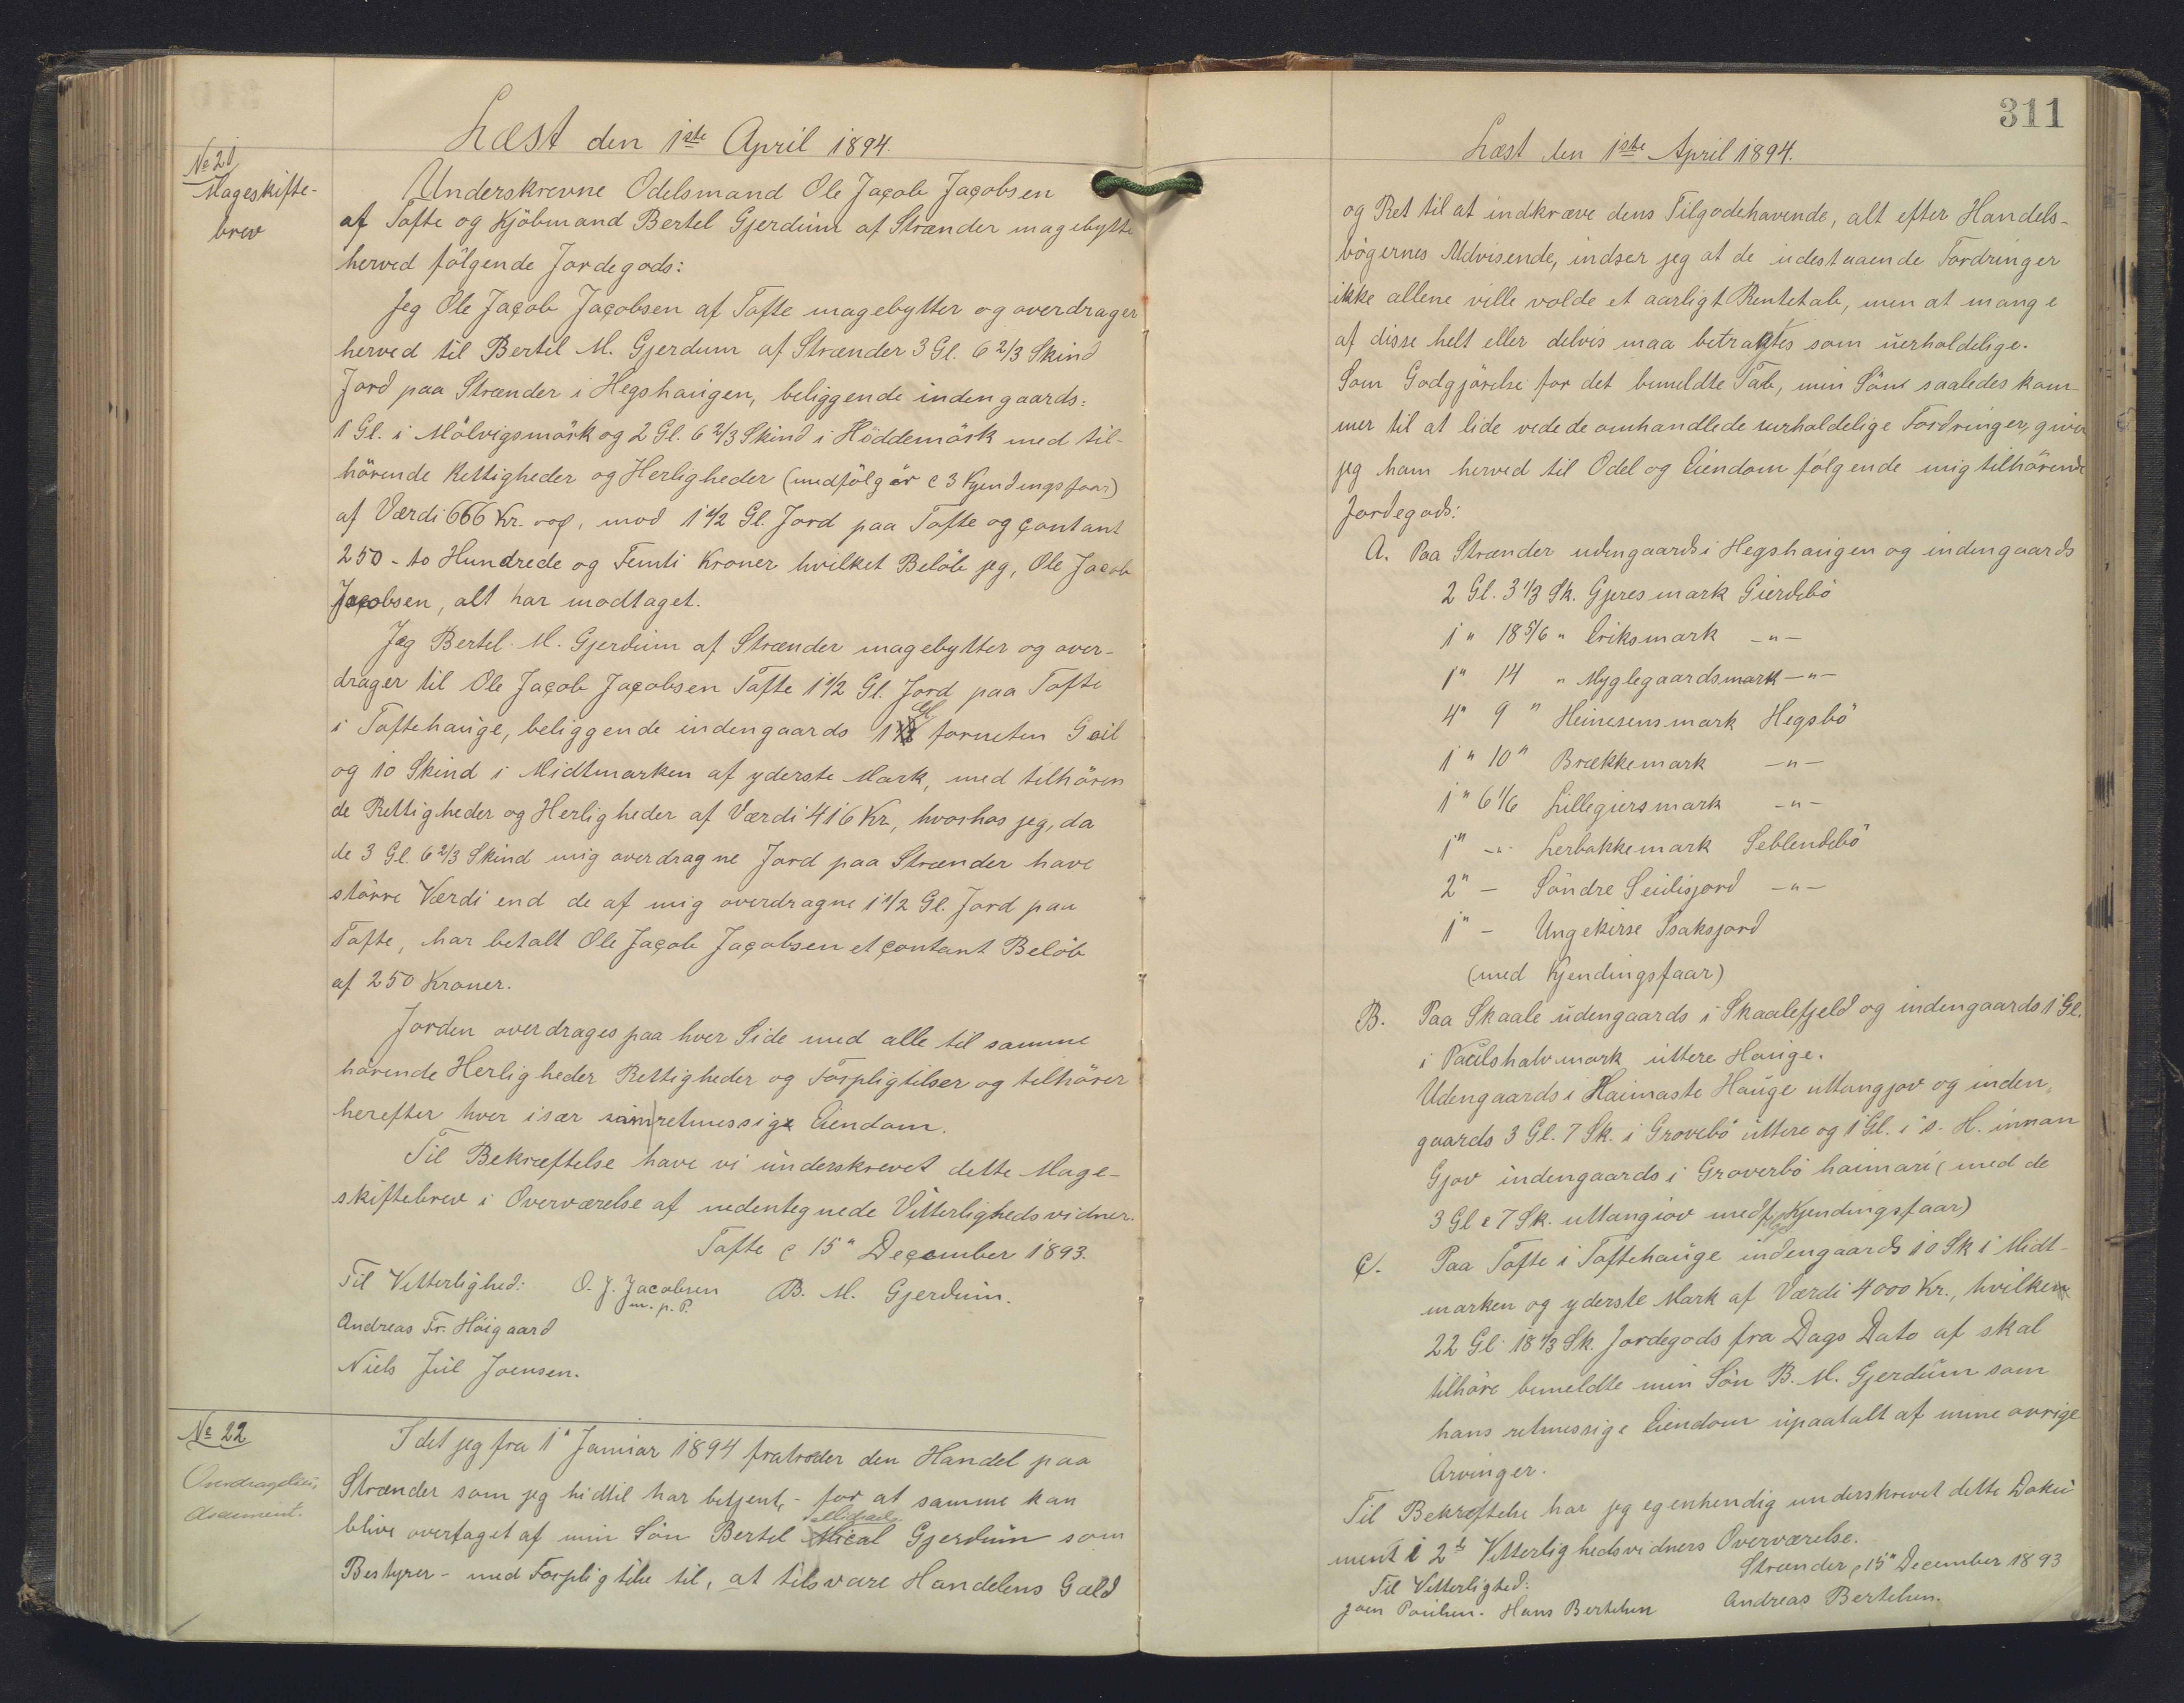 Læst den 1ste April 1894.
No 21
Mageskifte-
brev
Underskrevne Odelsmand Ole Jacob Jacobsen
af Tofte og Kjöbmand Bertel Gjerdum af Strænder magebytte
herved fölgende Jordegods:
Jeg Ole Jacob Jacobsen af Tofte magebytter og overdrager
herved til Bertel M. Gjerdum af Strænder 3 Gl. 6 2/3 Skind
Jord paa Strænder i Hegshaugen, beliggende indengaards:
1 Gl. i Mölvigsmörk og 2 Gl. 6 2/3 Skind i Höddemörk med til-
hörende Rettigheder og Herligheder (medfölger c 3 Kjendingsfaar)
af Værdi 666 Kr. mod 1 1/2 Gl. Jord paa Tofte og contant
250 - to Hundrede og Femti Kroner hvilket Belöb jeg, Ole Jacob
Jacobsen, alt har modtaget.
Jeg Bertel M. Gjerdum af Strænder magebytter og over-
drager til Ole Jacob Jacobsen Tofte 1 1/2 Gl. Jord paa Tofte
i Toftehauge, beliggende indengaards 1 Gl forneten Geil
og 10 Skind i Midtmarken af yderste Mark, med tilhören
de Rettigheder og Herligheder af Værdi 416 Kr., hvorhos jeg, da
de 3 Gl. 6 2/3 Skind mig overdragne Jord paa Strænder have
större Værdi end de af mig overdragne 1 1/2 Gl. Jord paa
Tofte, har betalt Ole Jacob Jacobsen et contant Belöb
af 250 Kroner.
Jorden overdrages paa hver Side med alle til samme
hörende Herligheder Rettigheder og Forpligtelser og tilhörer
herefter hver især som retmessige Eiendom.
Til Bekræftelse have vi underskrevet dette Mage-
skiftebrev i Overværelse af nedentegnede Vitterlighedsvidner.
Tofte c 15" December 1893.
Til Vitterlighed: O. J. Jacobsen B. M. Gjerdum.
m. p. P.
Andreas Fr. Höigaard
Niels Jul Joensen.
No 22
Overdragelses
document.
Idet jeg fra 1" Januar 1894 fratræder den Handel paa
Strænder som jeg hidtil har betjent, - for at samme kan
blive overtaget af min Sön Bertel Mical Gjerdum som
Bestyrer - med Forpligtelse til, at tilsvare Handelens Gæld
311
Læst den 1ste April 1894.
og Ret til at indkræve dens Tilgodehavende, alt efter Handels-
bögernes Udvisende, indser jeg at de udestaaende Fordringer
ikke allene ville volde et aarligt Rentetab, men at mange
af disse helt eller delvis maa betragtes som uerholdelige.
Som Godgjörelse for det bemeldte Tab, min Sön saaledes kom-
mer til at lide vedede omhandlede uerholdelige Fordringer, giver
jeg ham herved til Odel og Eiendom fölgende mig tilhörende
Jordegods:
A. Paa Strænder udengaards i Hegshaugen og indengaards
2 Gl. 3 1/3 Sk. Gjeresmark Gierdebö
1 " 18 5/6 " Eriksmark - " -
1 " 14 " Myglegaardsmark - " -
4 " 9 " Heinesensmark Hegsbö
1 " 10 " Brækkemark - " -
1 " 6 1/6 Lillegiersmark - " -
1 " - " Lerbakkemark Seblendebö
2 " - Söndre Seidisjord - " -
1 " - Ungekirse Isaksjord
(med Kjendingsfaar)
B. Paa Skaale udengaards i Skaalefjeld og indengaards 1 Gl.
i Paulshalvmark uttere Hauge.
Udengaards i Haimaste Hauge uttangjov og inden
gaards 3 Gl. 7 Sk. i Grovebö uttere og 1 Gl. i s. H. innan
Gjov indengaards i Groverbö haimari (med de
3 Gl c 7 Sk. uttangiov medfölger Kjendingsfaar)
C. Paa Tofte i Toftehauge indengaards 10 Sk i Midt-
marken og yderste Mark af Værdi 4000 Kr., hvilke
22 Gl. 18 1/3 Sk. Jordegods fra Dags Dato af skal
tilhöre bemeldte min Sön B. M. Gjerdum som
hans retmessige Eiendom upaatalt af mine övrige
Arvinger.
Til Bekræftelse har jeg egenhendig underskrevet dette Doku
ment i 2de Vitterlighedsvidners Overværelse.
Strænder, 15" December 1893
Til Vitterlighed:
Joen Poulsen. Hans Bertelsen Andreas Bertelsen.